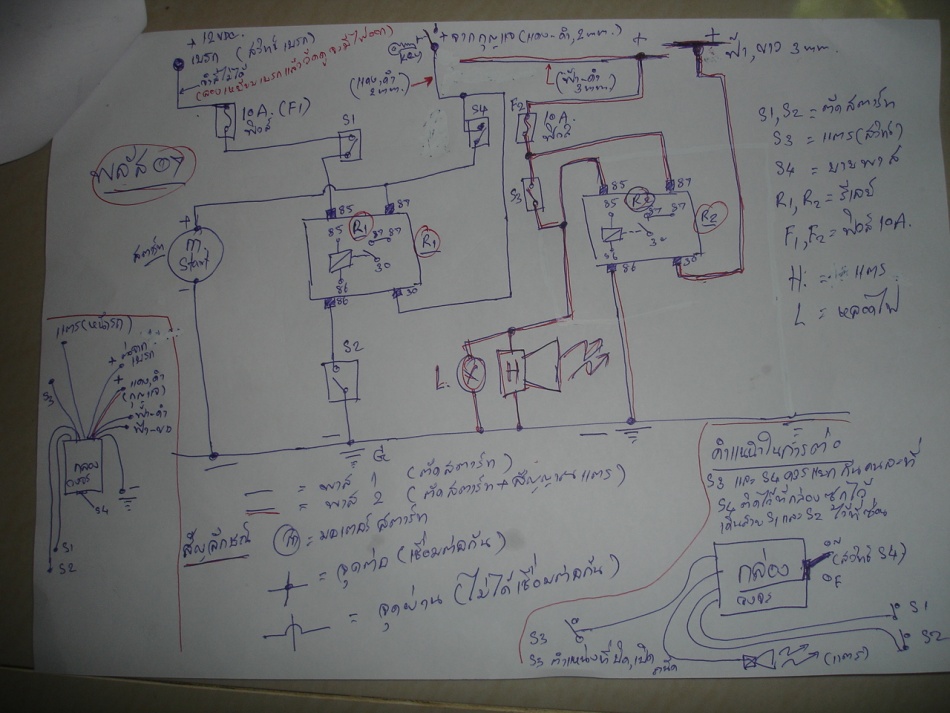 + 12VDC.
เบรก (สวิทซ์ เบรก)
10A. (F1)
ฟิวส์
S1
พลัส 07
+ จากกุญแจ (แดง-ดำ, 2 ทท.)
KEY
(แดง, ดำ
2 ททท.
S4
+
+
ฟ้า, ขาว 3 ททท.
(ฟ้า-ดำ
3 ททท.
F2
10A.
ฟิวส์
S3
S1, S2 = ตัดสตาร์ท
S3 = แตร (สวิทซ์)
S4 = บายพาส
R1, R2 = รีเลย์
F1, F2 = ฟิวส์ 10A.
H = แตร
L = หลอดไฟ
สตาร์ท
+
M
Start
-
85
87
85
R1
87
87
30
86
R1
86
30
S2
85
87
85
R2
87
87
30
86
R2
86
30
L
H
G
แตร (หน้ารถ)
+ จาก
เบรก
+ แดง, ดำ
(กุญแจ)
ฟ้า-ดำ
ฟ้า-ขาว
S3
กล่อง
วงจร
S4
S1
S2
= พาส 1 (ตัดสตาร์ท)
= พาส 2 (ตัดสตาร์ท + สัญญาณแตร)
สัญลักษณ์
M = มอเตอร์ สตาร์ท
= จุดต่อ (เชื่อมต่อกัน)
= จุดผ่าน (ไม่ได้เชื่อมต่อกัน)
คำแนะนำในการต่อ
S3 และ S4 ควรแยกกันคนละที่
S4 ติดไว้ที่กล่อง ซุกไว้
เดินสาย S1 และ S2 ไว้ที่ซ่อน
กล่อง
วงจร
(สวิทซ์ S4)
S3
S3 ตำแหน่งที่ปิด, เปิด
ถนัด
(แตร)
S1
S2